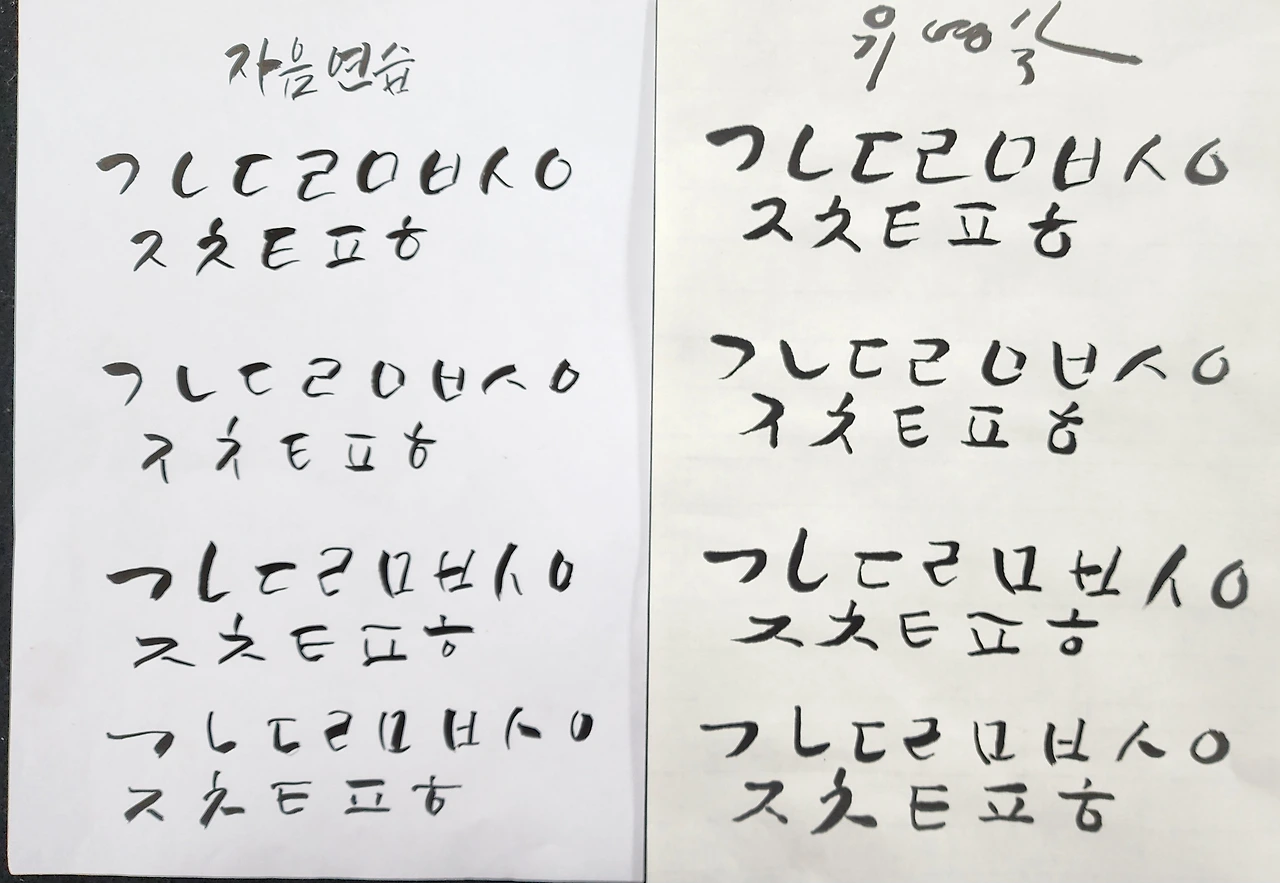 자음연습
ㄱㄴㄷㄹㅁㅂㅅㅇ
ㅈㅊㅌㅍㅎ
ㄱㄴㄷㄹㅁㅂㅅㅇ
ㅈㅊㅌㅍㅎ
ㄱㄴㄷㄹㅁㅂㅅㅇ
ㅈㅊㅌㅍㅎ
ㄱㄴㄷㄹㅁㅂㅅㅇ
ㅈㅊㅌㅍㅎ
ㄱㄴㄷㄹㅁㅂㅅㅇ
ㅈㅊㅌㅍㅎ
ㄱㄴㄷㄹㅁㅂㅅㅇ
ㅈㅊㅌㅍㅎ
ㄱㄴㄷㄹㅁㅂㅅㅇ
ㅈㅊㅌㅍㅎ
ㄱㄴㄷㄹㅁㅂㅅㅇ
ㅈㅊㅌㅍㅎ